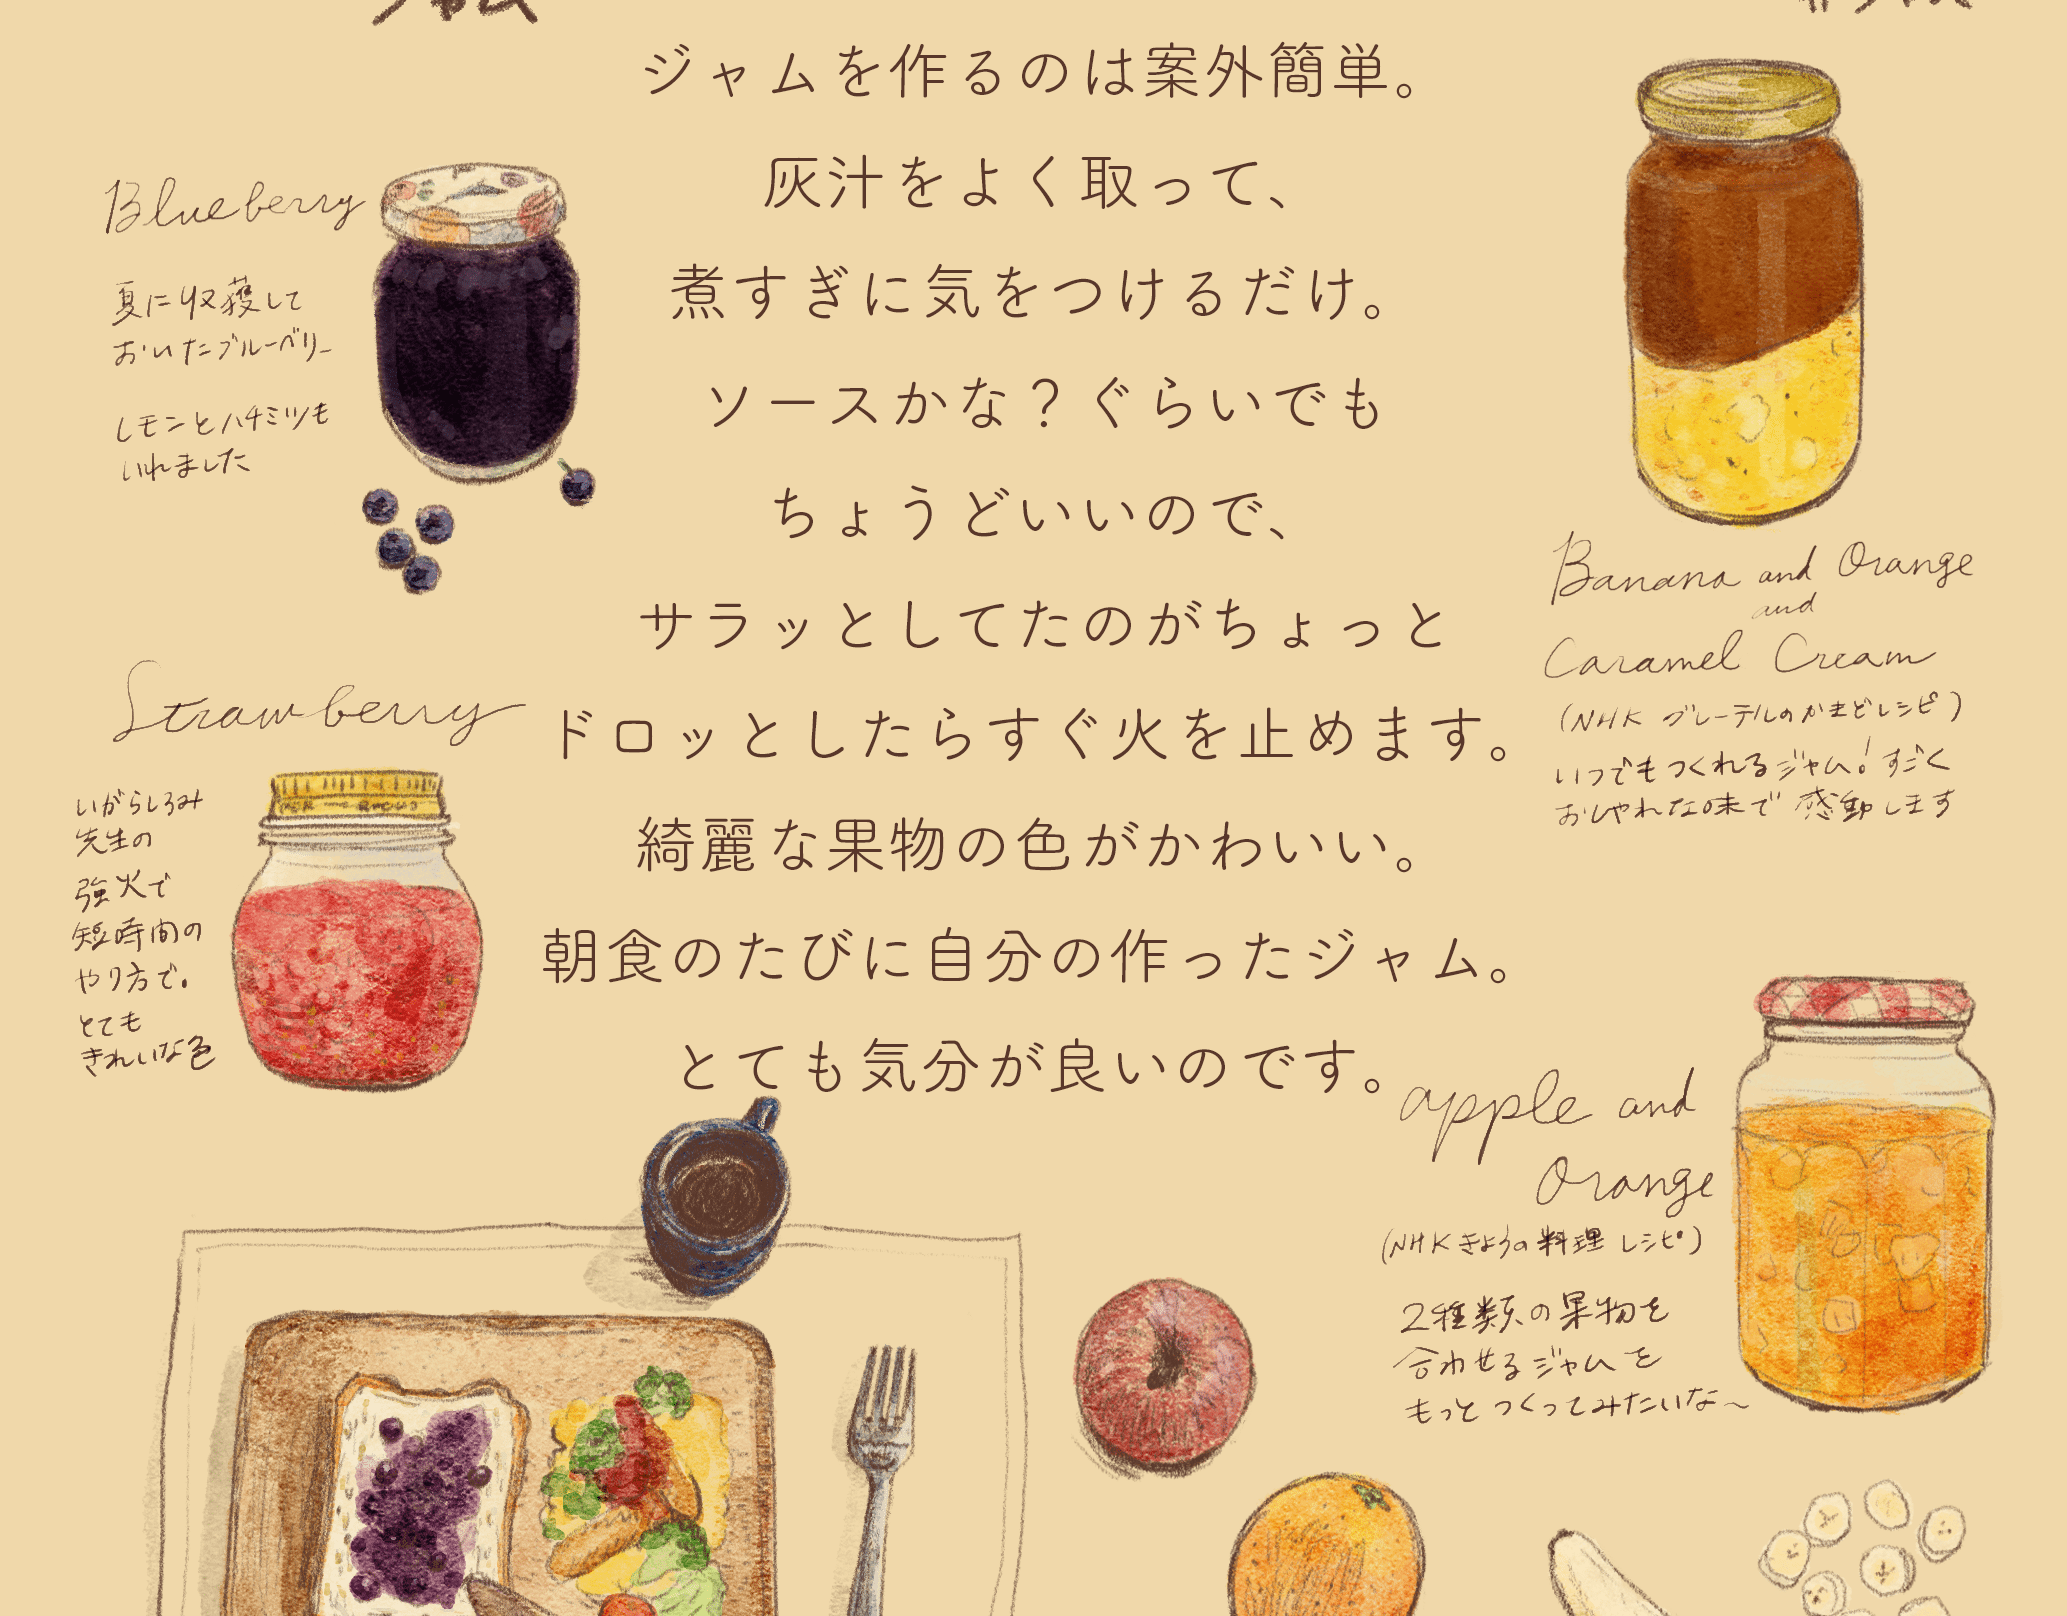 ジャムを作るのは案外簡単。
灰汁をよく取って、
煮すぎに気をつけるだけ。
ソースかな？ぐらいでも
ちょうどいいので、
サラッとしてたのがちょっと
ドロッとしたらすぐ火を止めます。
綺麗な果物の色がかわいい。
朝食のたびに自分の作ったジャム。
とても気分が良いのです。
Blueberry
夏に収穫して
おいたブルーベリー
レモンとハチミツも
いれました
Strawberry
いがらしろみ
先生の
強火で
短時間の
やり方で。
とても
きれいな色
Banana and Orange
and
Caramel Cream
(NHK グレーテルのかまどレシピ)
いつでもつくれるジャム！すごく
おしゃれな味で感動します
apple and
Orange
(NHKきょうの料理 レシピ)
2種類の果物を
合わせるジャムを
もっとつくってみたいな〜